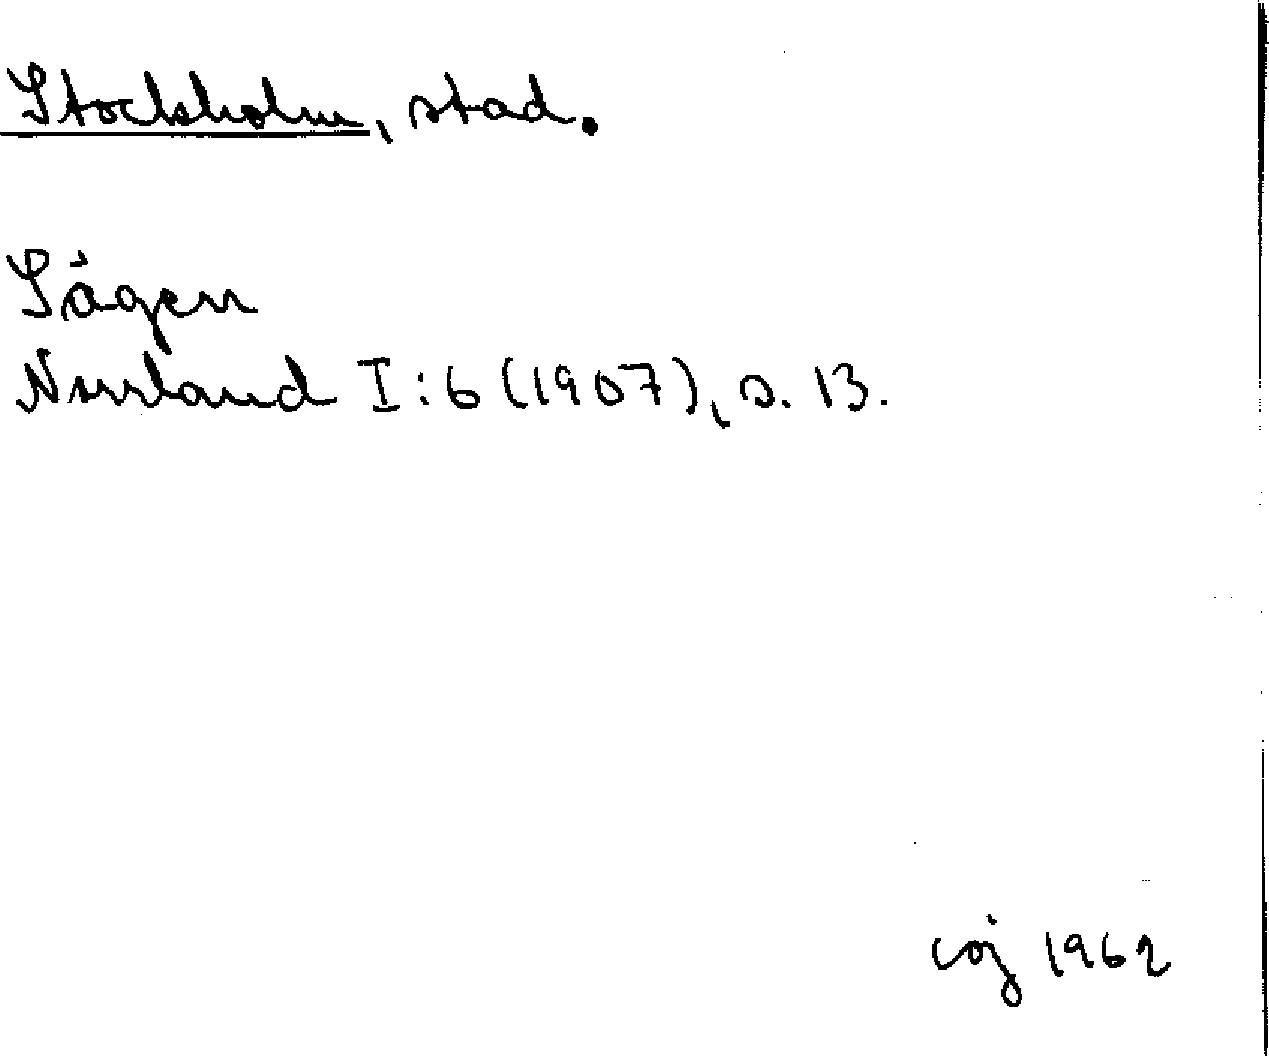 Stockholm, stad.
Sägen
Norrland I:6 (1907), s. 13.
coj 1962